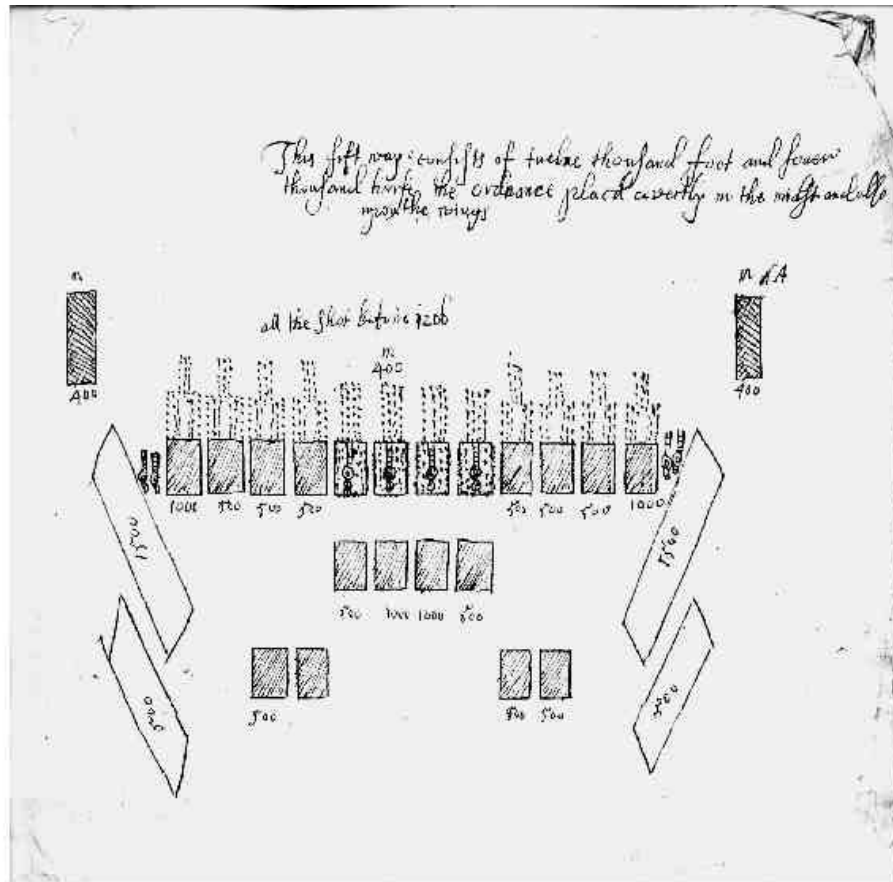 This fift way: consists of twelue thousand foot and fower
thousand horse, the ordnance placd covertly in the midst and also
upon the wings
m
m A
all the shot before 1200
m
400
400
400
1000 500 500 500
500 500 500 1000
1500
1500
500 1000 1000 500
500
500 500
500
500